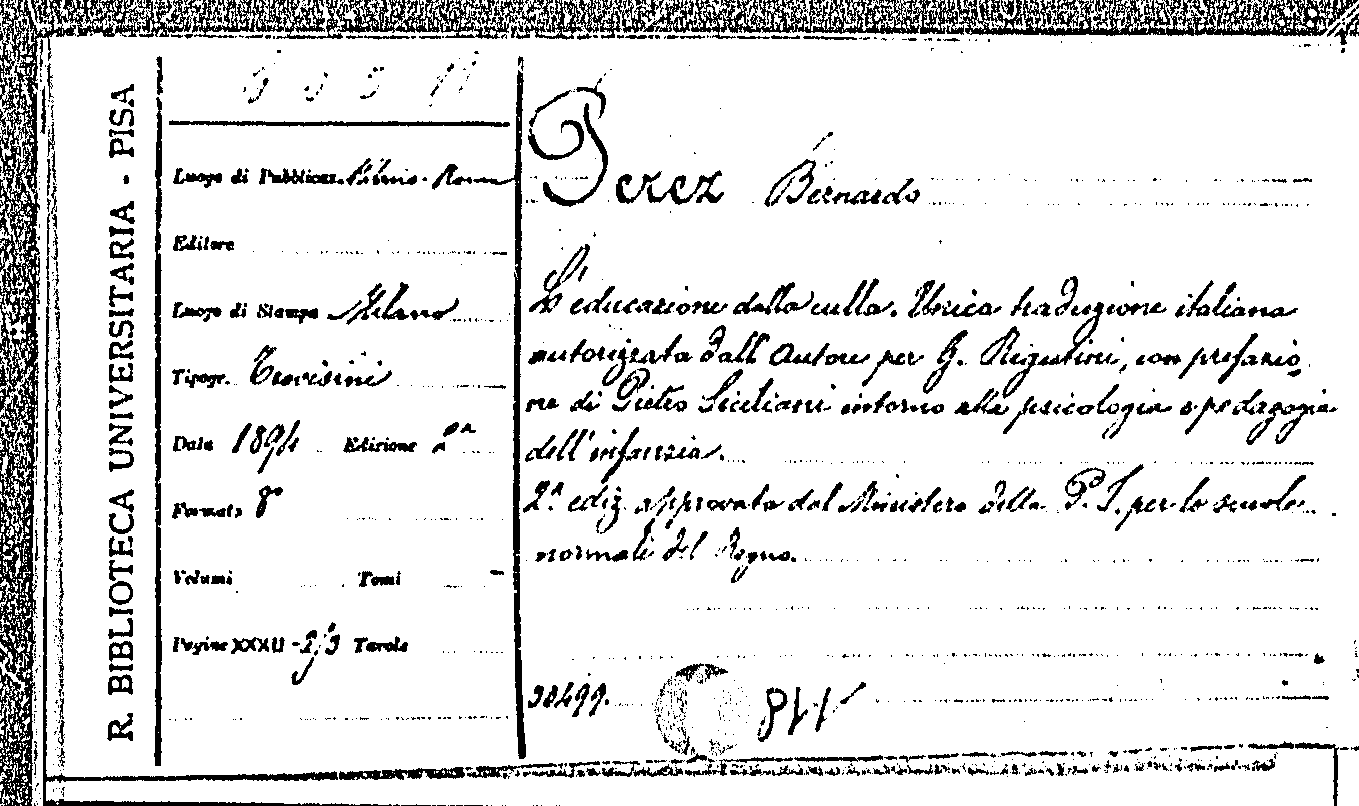 R. BIBLIOTECA UNIVERSITARIA - PISA
Luogo di Pubblicaz. Milano-Roma
Editore
Luogo di Stampa Milano
Tipogr. Trevisini
Data 1894 Edizione 2ª
Formato 8°
Volumi Tomi -
Pagine XXXII- Tavole
Perez Bernardo
L'educazione dalla culla. Unica traduzione italiana
autorizzata dall'Autore per G. Rigutini, con prefazio
ne di Pietro Siciliani intorno alla psicologia e pedagogia
dell'infanzia.
2ª ediz. approvata dal Ministero della P. I. per le scuole
normali del Regno.